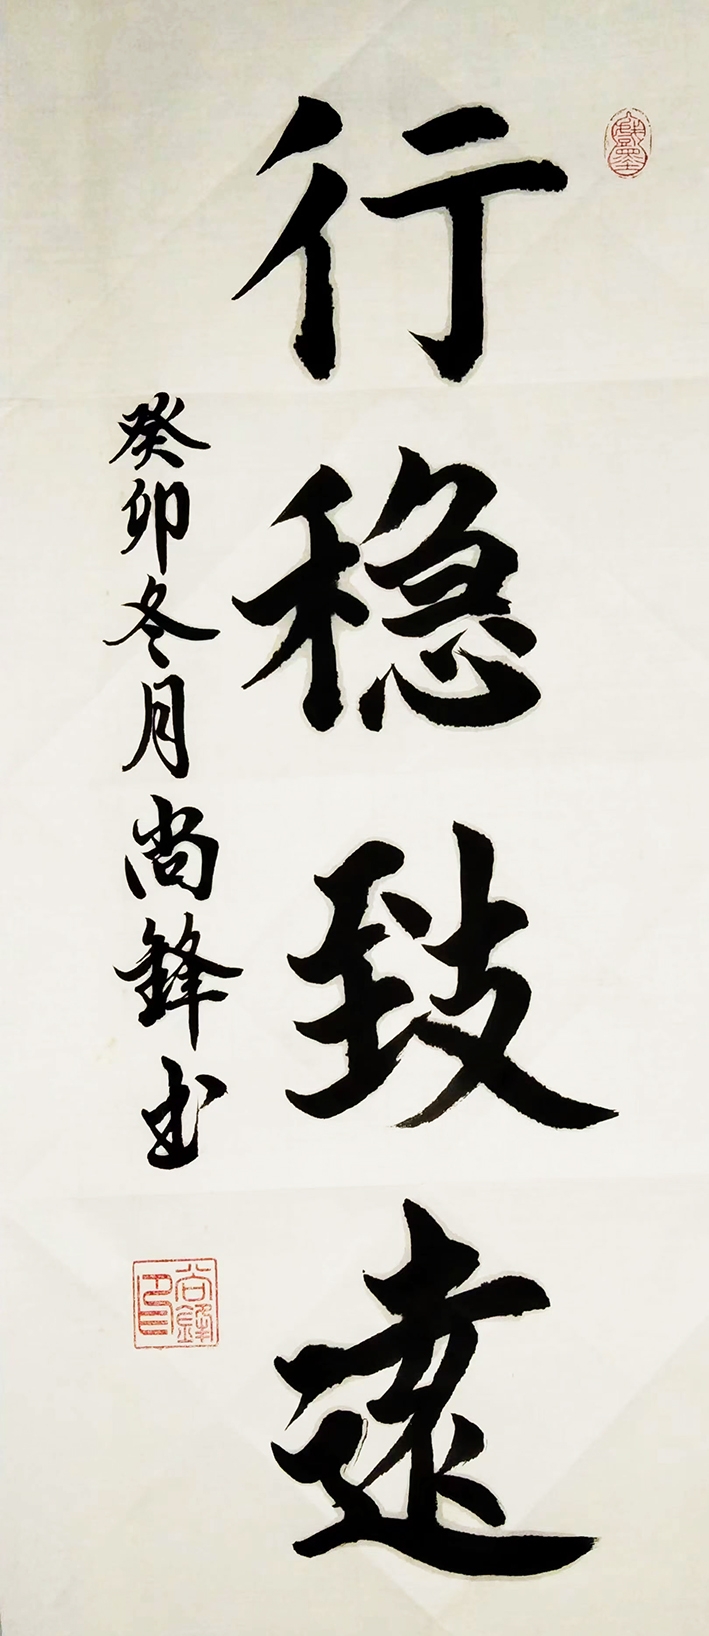 行稳致遠
癸卯冬月尚鋒书
尚鋒印